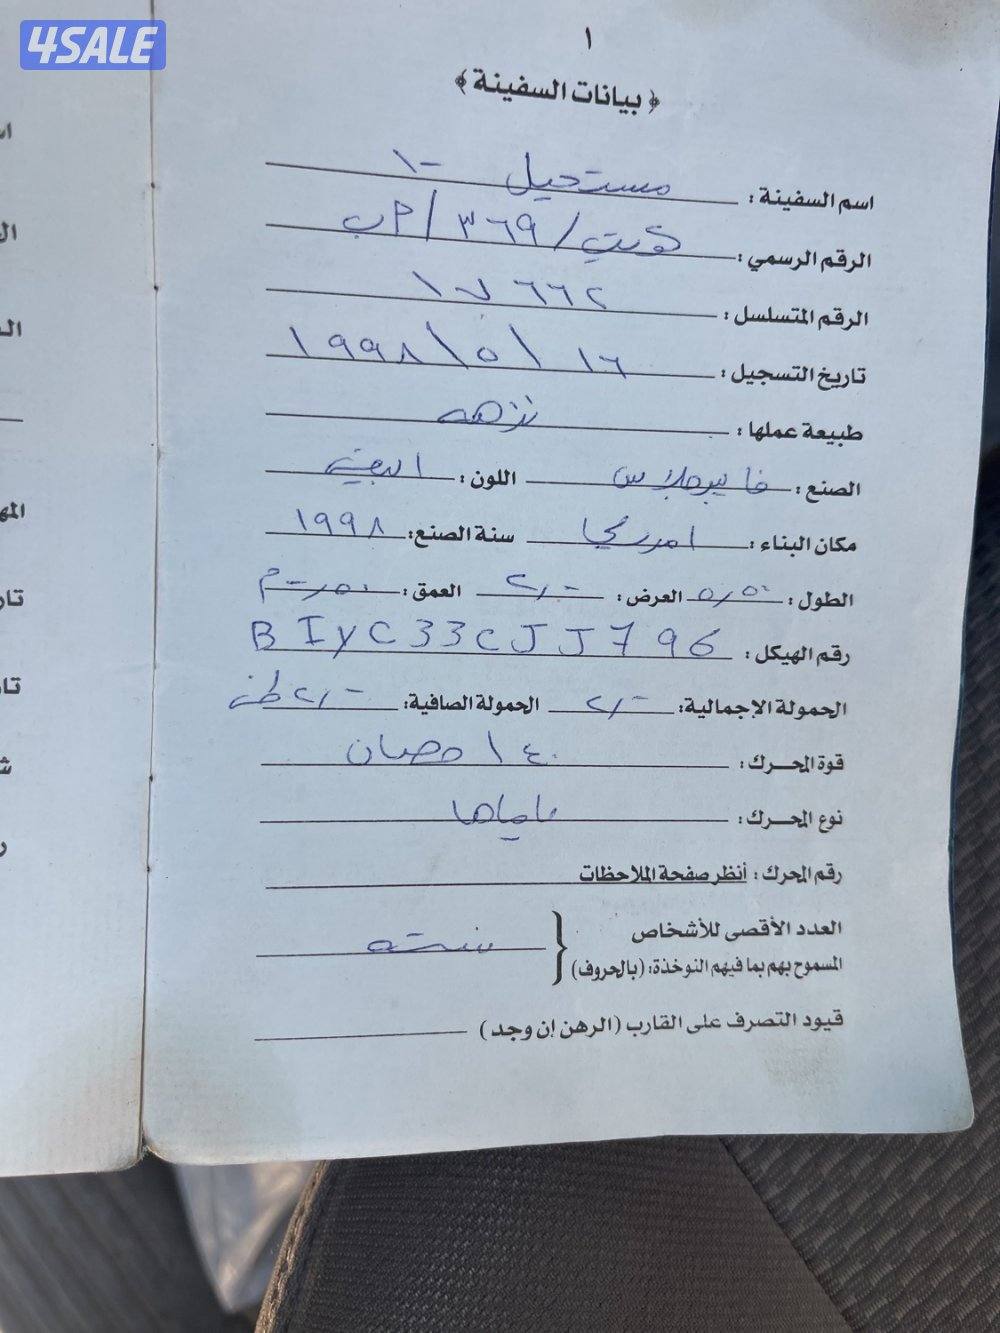 4SALE
١
﴿ بيانات السفينة ﴾
اسم السفينة : مستحيل -١
الرقم الرسمي : كويت / ٣٦٩ / م ب
الرقم المتسلسل : ٢٦٦
تاريخ التسجيل : ١٦ / ٥ / ١٩٩٨
طبيعة عملها : نزهه
الصنع : فايبرجلاس اللون : ابيض
مكان البناء : امريكي سنة الصنع: ١٩٩٨
الطول : ٥,٥٠ العرض : ٢,٠٠ العمق :
رقم الهيكل : BIYC33CJJ796
الحمولة الإجمالية: ٢,٠ الحمولة الصافية: ٢,٠ طن
قوة المحــرك : ١٤٠ حصان
نوع المحــرك : ياماها
رقم المحرك : أنظر صفحة الملاحظات
العدد الأقصى للأشخاص
المسموح بهم بما فيهم النوخذة: (بالحروف) سته
قيود التصرف على القارب ( الرهن إن وجد )